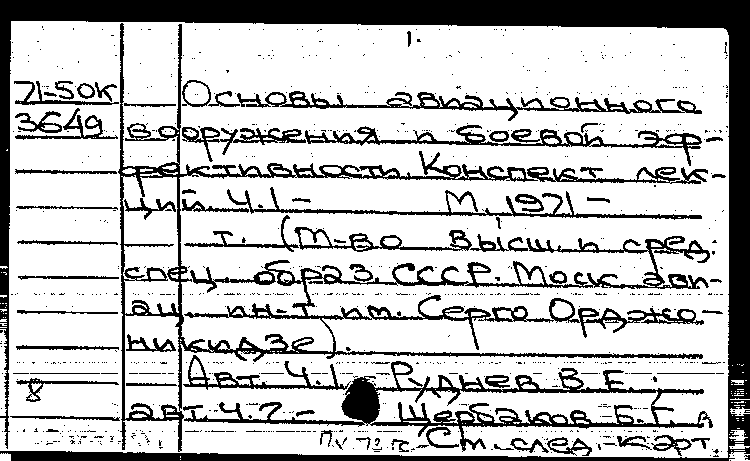 1.
71-50К Основы авиационного
3649 вооружения и боевой эф-
фективности. Конспект лек-
ций. Ч.1- М. 1971-
т. (М-во высш. и сред.
спец. образ. СССР. Моск. ави-
ац. ин-т им. Серго Орджо-
никидзе).
8 Авт. Ч.1. - Руднев В.Е.;
авт. Ч.2.- Щербаков Б.Г.
См. след. карт.